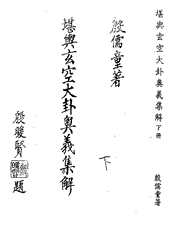 堪輿玄空大卦奧義集解下冊
殷儒童著
殷儒童著
堪輿玄空大卦奧義集解
下
殷駿賢
題